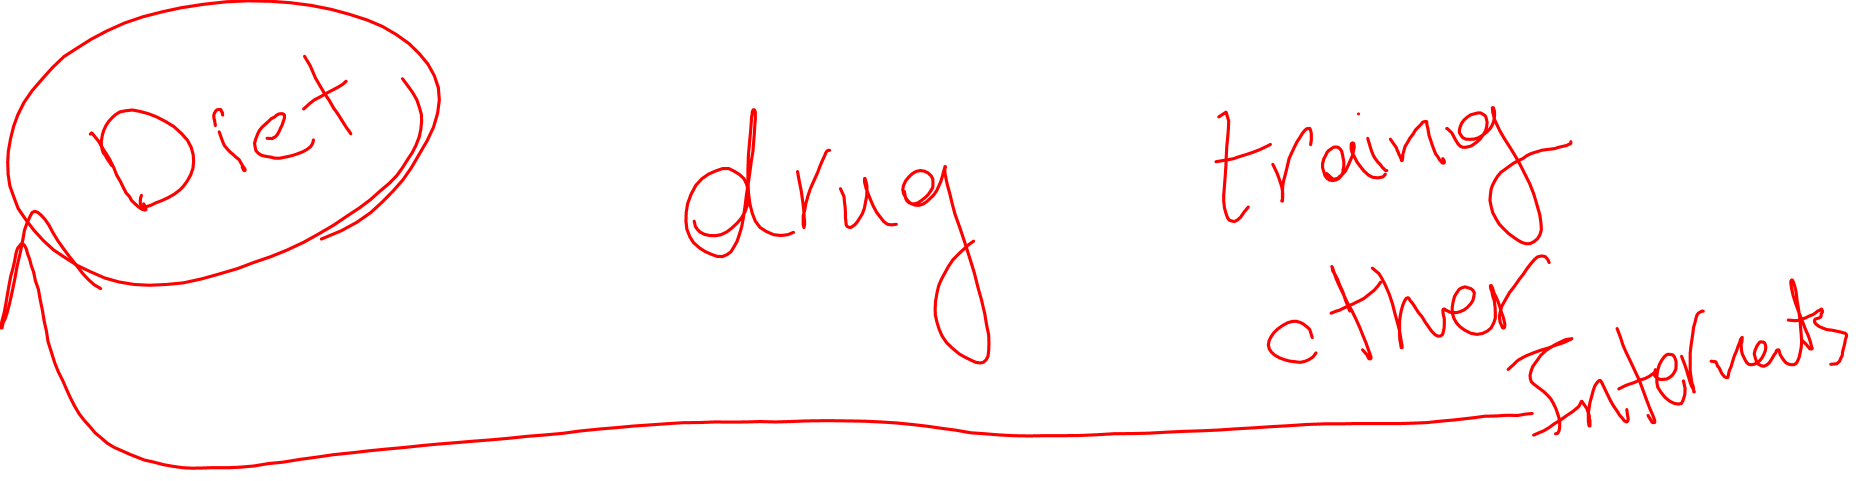 Diet drug traing
other
Intervents